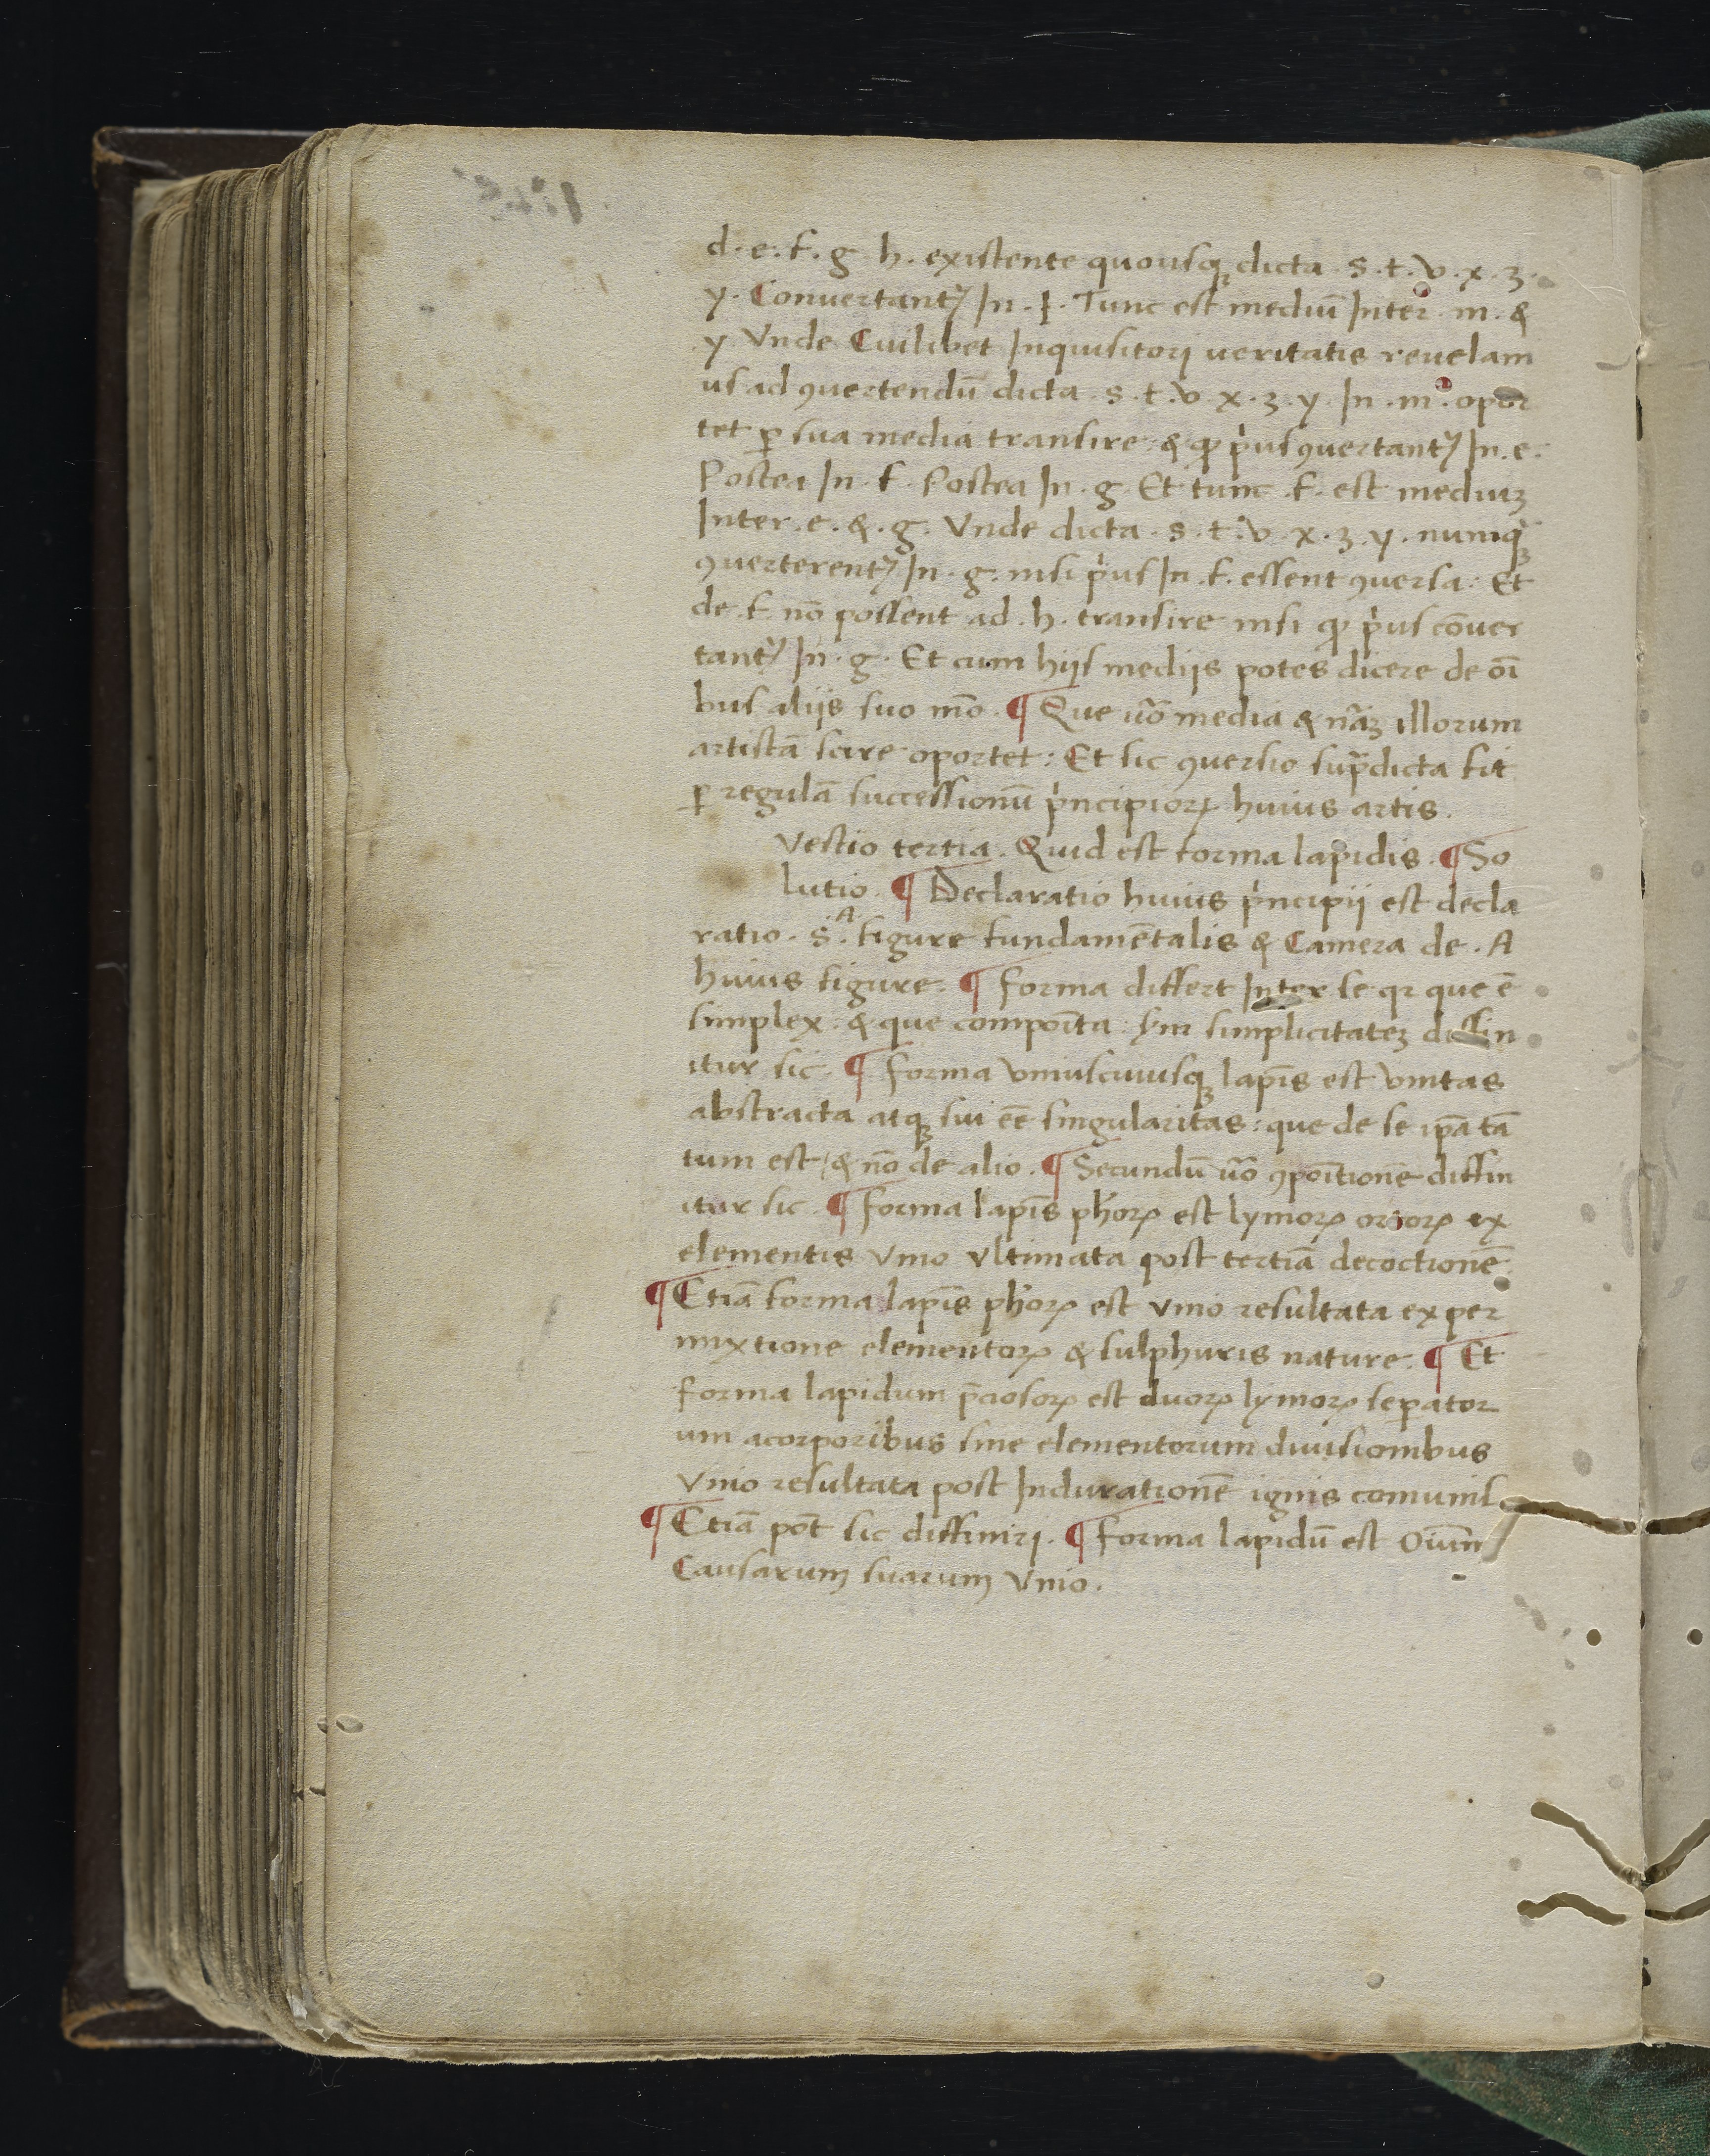 d. e. f. g h. existente quousqꝫ dicta. s. t. v. x. z.
y. Conuertantꝰ In. ł. Tunc est mediū Inter. m. &
y Vnde Cuilibet Inquisitori ueritatis reuelam
us ad ꝯuertendū dicta. s. t. v. x. z. y. In. m. opor
tet ꝑ sua media transire. & ꝙ pͥus ꝯuertantꝰ In. e.
Postea In. f. Postea In. g. Et tunc. f. est mediuꝫ
Inter. e. &. g. Vnde dicta. s. t. v. x. z. y. numqꝫ
ꝯuerterentꝰ In. g. nisi pͥus In. f. essent ꝯuersa: Et
de. f. nō possent ad. h. transire nisi ꝙ pͥus cōuer
tantꝰ In. g. Et cum hijs medijs potes dicere de oī
bus alijs suo mō. ¶ Que u̅o media & nāꝫ illorum
artistā scire oportet: Et sic ꝯuersio supᷓdicta fit
ꝑ regulā successionū pͥncipioꝝ huius artis.
Vestio tertia. Quid est forma lapidis. ¶ So
lutio. ¶ Declaratio huius pͥncipii est decla
ratio. S. A figure fundamētalis & Camera de. A
huius figure. ¶ Forma differt Inter se qꝛ que ē
simplex. & que compoīta: sm̄ simplicitateꝫ diffin
itur sic. ¶ Forma vniuscuiusqꝫ lapīs est vnitas
abstracta atqꝫ sui eē singularitas: que de se ip̄a tā
tum est, & nō de alio. ¶ Secundū u̅o ꝯpoītione diffin
itur sic. ¶ Forma lapīs ph̄oꝝ est lymoꝝ ortoꝝ ex
elementis vnio vltimata post tertiā decoctionē.
¶ Etiā forma lapīs ph̄oꝝ est vnio resultata ex per
mixtione elementoꝝ & sulphuris nature. ¶ Et
forma lapidum p̄ciosoꝝ est duoꝝ lymoꝝ seꝑator
um acorporibus sine elementorum diuisionibus
vnio resultata post Indurationē ignis comunis
¶ Etiā pōt sic diffiniri. ¶ Forma lapidū est oīum
Causarum suarum vnio.